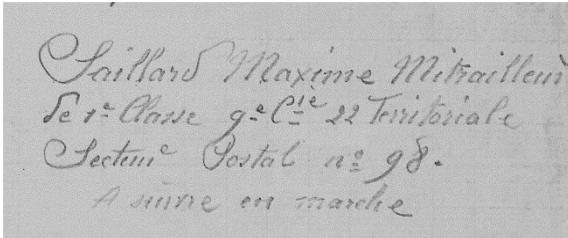 Saillard Maxime Mitrailleur
de 1e Classe 9e Cie 22 Territoriale
Secteur Postal no 98.
A suivre en marche